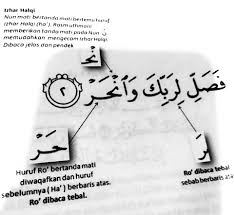 Izhar Halqi
Nun mati bertanda mati bertemu huruf
Izhar Halqi (ha'). Rasm uthmani
memberikan tanda mati pada Nun
memudahkan mengecam Izhar Halqi.
Dibaca jelas dan pendek
نْحَ
فَصَلِّ لِرَبِّكَ وَانْحَرْ ٢
حَرْ
رَ
Huruf Ro' bertanda mati
diwaqafkan dan huruf
sebelumnya (Ha') berbaris atas.
Ro' dibaca tebal.
Ro' dibaca tebal
sebab berbaris atas